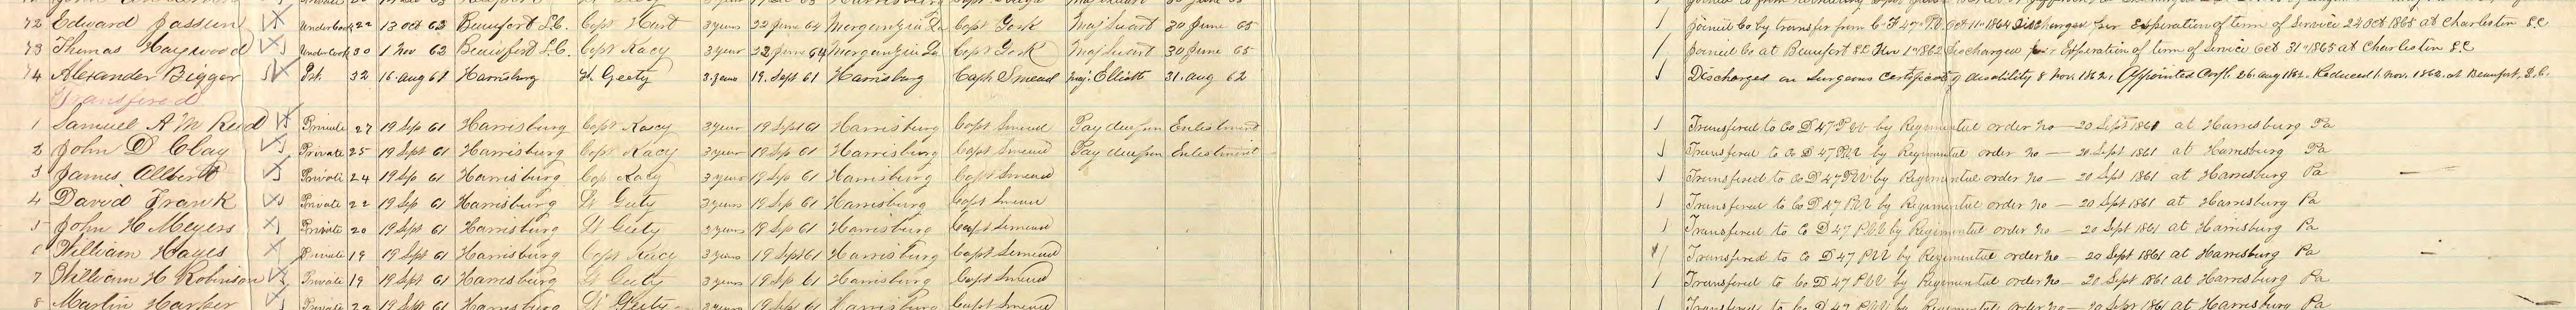 72 Edward Jassum Under Cook 22 13 Oct 62 Beaufort S.C. Capt Hurt 3 years 22 June 64 Morganzia La Capt York Maj Suart 30 June 65 Joined Co by transfer from C. F 47" P.V. Oct 11" 1864 Discharged per Experation of term of Service 24 Oct 1865 at Charleston S.C
73 Thomas Haywood Under Cook 30 1 Nov 62 Beaufort S.C. Capt Kacy 3 year 22 June 64 Morganzia La Capt York Maj Suart 30 June 65 Joined Co at Beaufort S.C Nov 1" 1862 Discharged per Experation of term of Service Oct 31" 1865 at Charleston S.C
74 Alexander Bigger Pvt. 32 16. Aug 61 Harrisburg Lt. Geety 3 years 19. Sept 61 Harrisburg Capt Smead Maj. Elliott 31. Aug 62 Discharged on Surgeons Certificate of disability 8 Nov. 1862. Appointed Corpl. 26. Aug 1862. Reduced 1. Nov. 1862. at Beaufort. S.C.
Transfered
1 Samuel A M Reid Private 27 19 Sep 61 Harrisburg Capt Kacy 3 year 19 Sept 61 Harrisburg Capt Smead Pay due from Enlistment Transfered to Co D 47" P.V by Regimental order no — 20 Sept 1861 at Harrisburg Pa
2 John D Clay Private 25 19 Sept 61 Harrisburg Capt Kacy 3 year 19 Sep 61 Harrisburg Capt Smead Pay due from Enlistment Transfered to Co D 47 P.V by Regimental order no — 20 Sept 1861 at Harrisburg Pa
3 James Allbert Private 24 19 Sep 61 Harrisburg Cap Kacy 3 years 19 Sep 61 Harrisburg Capt Smead Transfered to Co D 47 P.V by Regimental order no — 20 Sept 1861 at Harrisburg Pa
4 David Frank Private 22 19 Sep 61 Harrisburg Lt Geety 3 years 19 Sep 61 Harrisburg Capt Smead Transfered to Co D 47 P.V by Regimental order no — 20 Sept 1861 at Harrisburg Pa
5 John H Meyers Private 20 19 Sep 61 Harrisburg Lt Geety 3 years 19 Sep 61 Harrisburg Capt Smead Transfered to Co D 47 P.V by Regimental order no — 20 Sept 1861 at Harrisburg Pa
6 William Hayes Private 19 19 Sept 61 Harrisburg Capt Kacy 3 years 19 Sept 61 Harrisburg Capt Smead Transfered to Co D 47 P.V by Regimental order no — 20 Sept 1861 at Harrisburg Pa
7 William H Robinson Private 19 19 Sept 61 Harrisburg Lt Geety 3 years 19 Sep 61 Harrisburg Capt Smead Transfered to Co D 47 P.V by Regimental order no — 20 Sept 1861 at Harrisburg Pa
8 Martin Harper Private 22 19 Sept 61 Harrisburg Lt Geety 3 years 19 Sept 61 Harrisburg Capt Smead Transfered to Co D 47 P.V by Regimental order no — 20 Sept 1861 at Harrisburg Pa